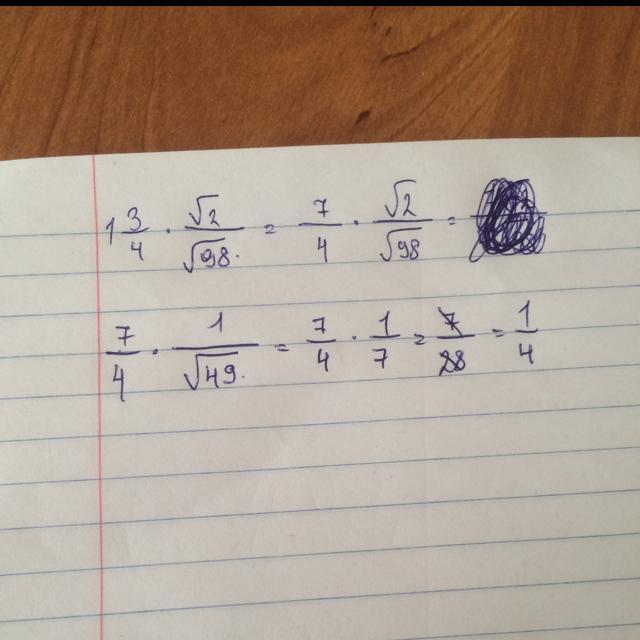 1 3/4 · √2/√98 = 7/4 · √2/√98 =
7/4 · 1/√49 = 7/4 · 1/7 = 7/28 = 1/4